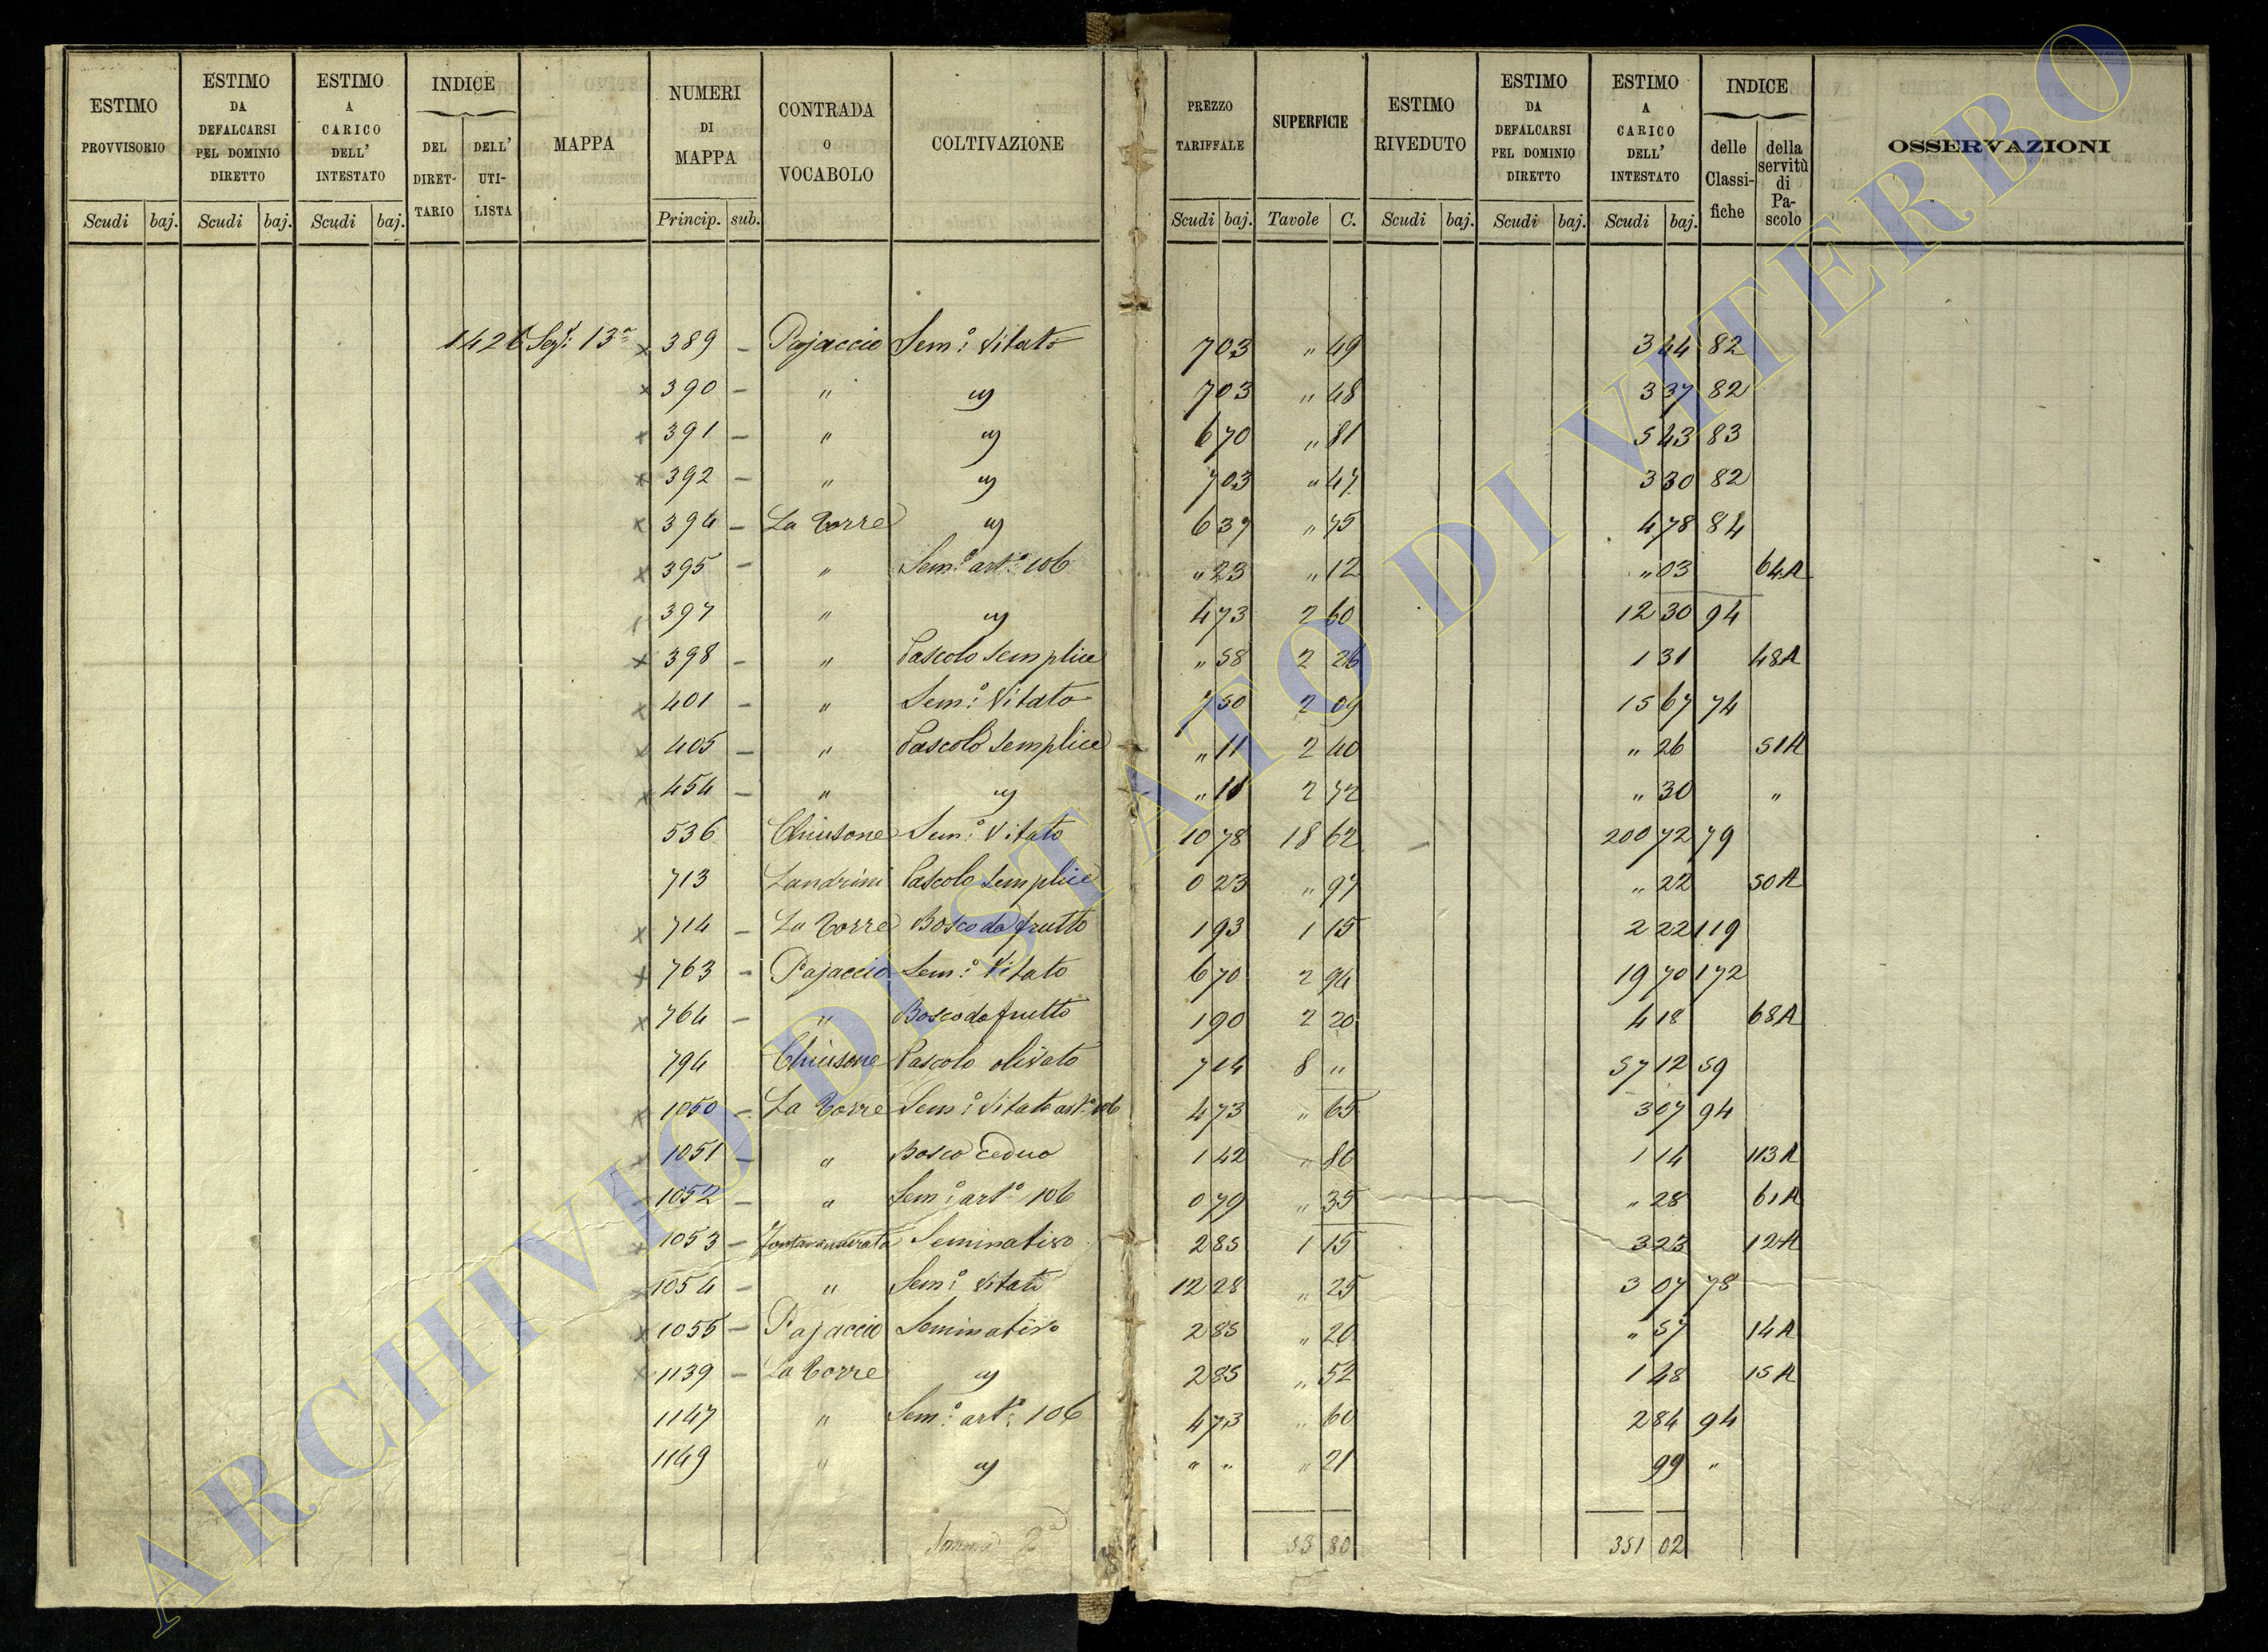 ESTIMO PROVVISORIO Scudi baj.
ESTIMO DA DEFALCARSI PEL DOMINIO DIRETTO Scudi baj.
ESTIMO A CARICO DELL' INTESTATO Scudi baj.
INDICE DEL DIRET- TARIO DELL' UTI- LISTA
MAPPA
NUMERI DI MAPPA Princip. sub.
CONTRADA O VOCABOLO
COLTIVAZIONE
PREZZO TARIFFALE Scudi baj.
SUPERFICIE Tavole C.
ESTIMO RIVEDUTO Scudi baj.
ESTIMO DA DEFALCARSI PEL DOMINIO DIRETTO Scudi baj.
ESTIMO A CARICO DELL' INTESTATO Scudi baj.
INDICE delle Classi- fiche della servitù di Pa- scolo
OSSERVAZIONI
1426 Sez: 13a x 389 - Pajaccio Sem:o Vitato 7 03 " 49 3 44 82
x 390 - " " 7 03 " 48 3 37 82
x 391 - " " 6 70 " 81 5 43 83
x 392 - " " 7 03 " 47 3 30 82
x 394 - La Torre " 6 37 " 75 4 78 84
x 395 - " Sem:o art:o 106 " 23 " 12 " 03 64A
x 397 " " 4 73 2 60 12 30 94
x 398 - " Pascolo semplice " 58 2 26 1 31 48A
x 401 - " Sem:o Vitato 7 50 2 09 15 67 74
x 405 - " Pascolo semplice " 11 2 40 " 26 51A
x 454 - " " " 11 2 72 " 30 "
536 Chiusone Sem:o Vitato 10 78 18 62 200 72 79
713 Landrini Pascolo semplice 0 23 " 97 " 22 50A
x 714 - La Torre Bosco da frutto 1 93 1 15 2 22 119
x 763 - Pajaccio Sem:o Vitato 6 70 2 94 19 70 172
x 764 - " Bosco da frutto 1 90 2 20 4 18 68A
794 Chiusone Pascolo olivato 7 14 8 " 57 12 59
x 1050 - La Torre Sem:o Vitato art:o 106 4 73 " 65 3 07 94
x 1051 - " Bosco ceduo 1 42 " 80 1 14 113A
1052 - " Sem:o art:o 106 0 79 " 35 " 28 61A
x 1053 - Seminativo 2 85 1 15 3 23 12A
x 1054 - " Sem:o Vitato 12 28 " 25 3 07 78
x 1055 - Pajaccio Seminativo 2 85 " 20 " 57 14A
x 1139 - La Torre " 2 85 " 52 1 48 15A
1147 " Sem:o art:o 106 4 73 " 60 2 84 94
1149 " " " " " 21 99 "
Somma 2a 53 80 351 02
ARCHIVIO DI STATO DI VITERBO